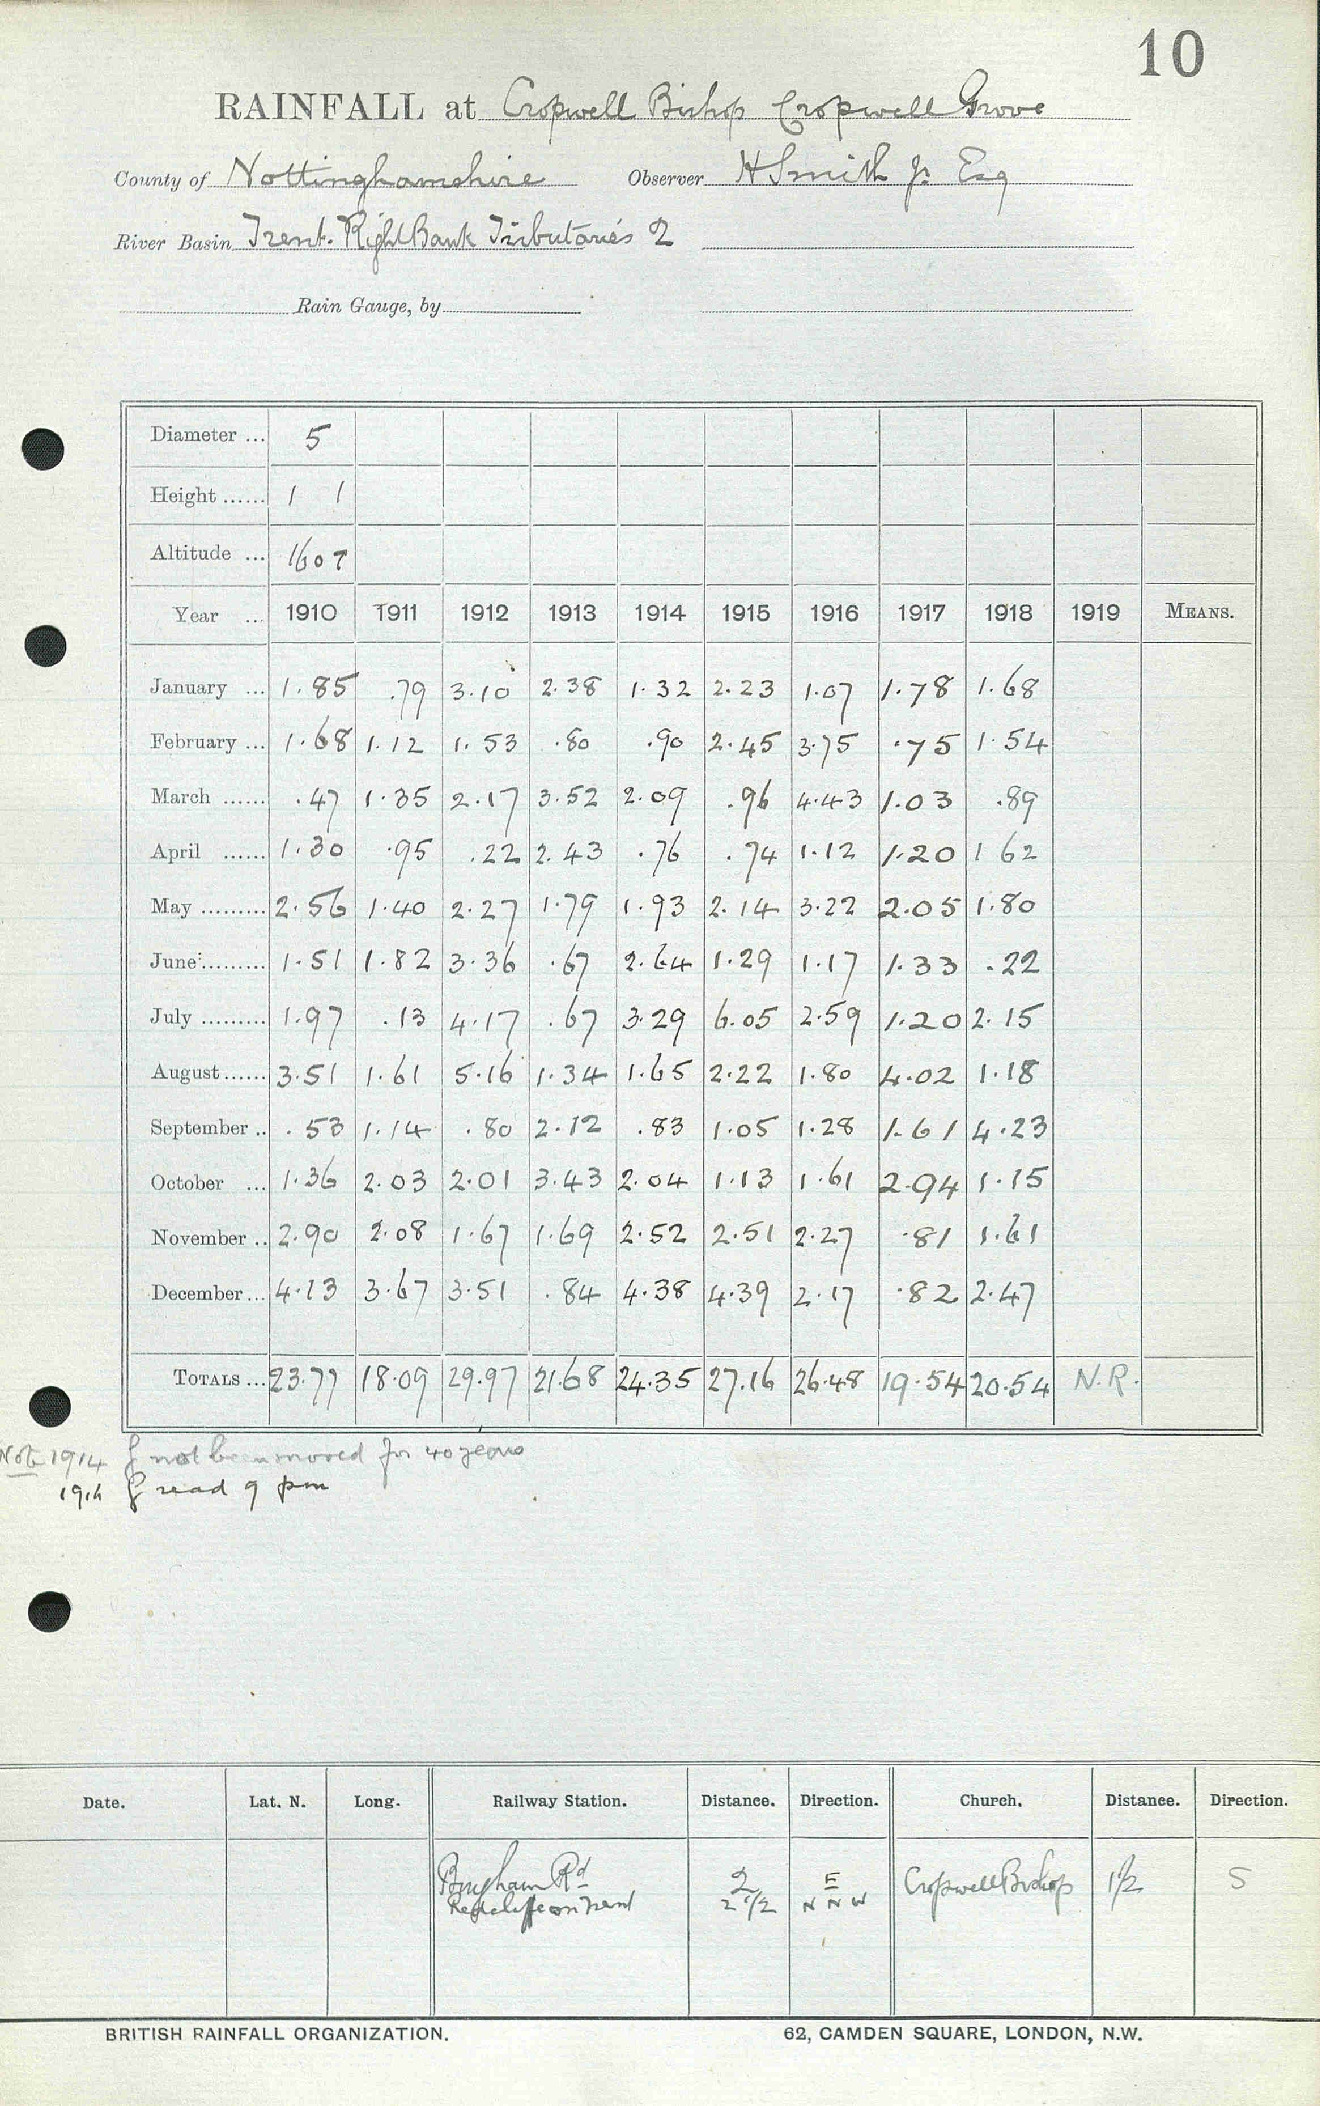 10
RAINFALL at Cropwell Bishop Cropwell Grove
County of Nottinghamshire Observer H Smith Jr Esq
River Basin Trent. Right Bank Tributaries 2
Rain Gauge, by
Diameter ... 5
Height ...... 1 1
Altitude ... 160 T
Year ... 1910 1911 1912 1913 1914 1915 1916 1917 1918 1919 MEANS.
January ... 1.85 .79 3.10 2.38 1.32 2.23 1.07 1.78 1.68
February ... 1.68 1.12 1.53 .80 .90 2.45 3.75 .75 1.54
March ...... .47 1.35 2.17 3.52 2.09 .96 4.43 1.03 .89
April ...... 1.30 .95 .22 2.43 .76 .74 1.12 1.20 1 62
May ......... 2.56 1.40 2.27 1.79 1.93 2.14 3.22 2.05 1.80
June ......... 1.51 1.82 3.36 .67 2.64 1.29 1.17 1.33 .22
July ......... 1.97 .13 4.17 .67 3.29 6.05 2.59 1.20 2.15
August ...... 3.51 1.61 5.16 1.34 1.65 2.22 1.80 4.02 1.18
September .. .53 1.14 .80 2.12 .83 1.05 1.28 1.61 4.23
October ... 1.36 2.03 2.01 3.43 2.04 1.13 1.61 2.94 1.15
November .. 2.90 2.08 1.67 1.69 2.52 2.51 2.27 .81 1.61
December ... 4.13 3.67 3.51 .84 4.38 4.39 2.17 .82 2.47
TOTALS ... 23.77 18.09 29.97 21.68 24.35 27.16 26.48 19.54 20.54 N.R.
Note 1914 G not been moved for 40 years
1914 G read 9 pm
Date. Lat. N. Long. Railway Station. Distance. Direction. Church. Distance. Direction.
Bingham Rd 2 E Cropwell Bishop 1 1/2 S
Radcliffe on Trent 2 1/2 N N W
BRITISH RAINFALL ORGANIZATION. 62, CAMDEN SQUARE, LONDON, N.W.